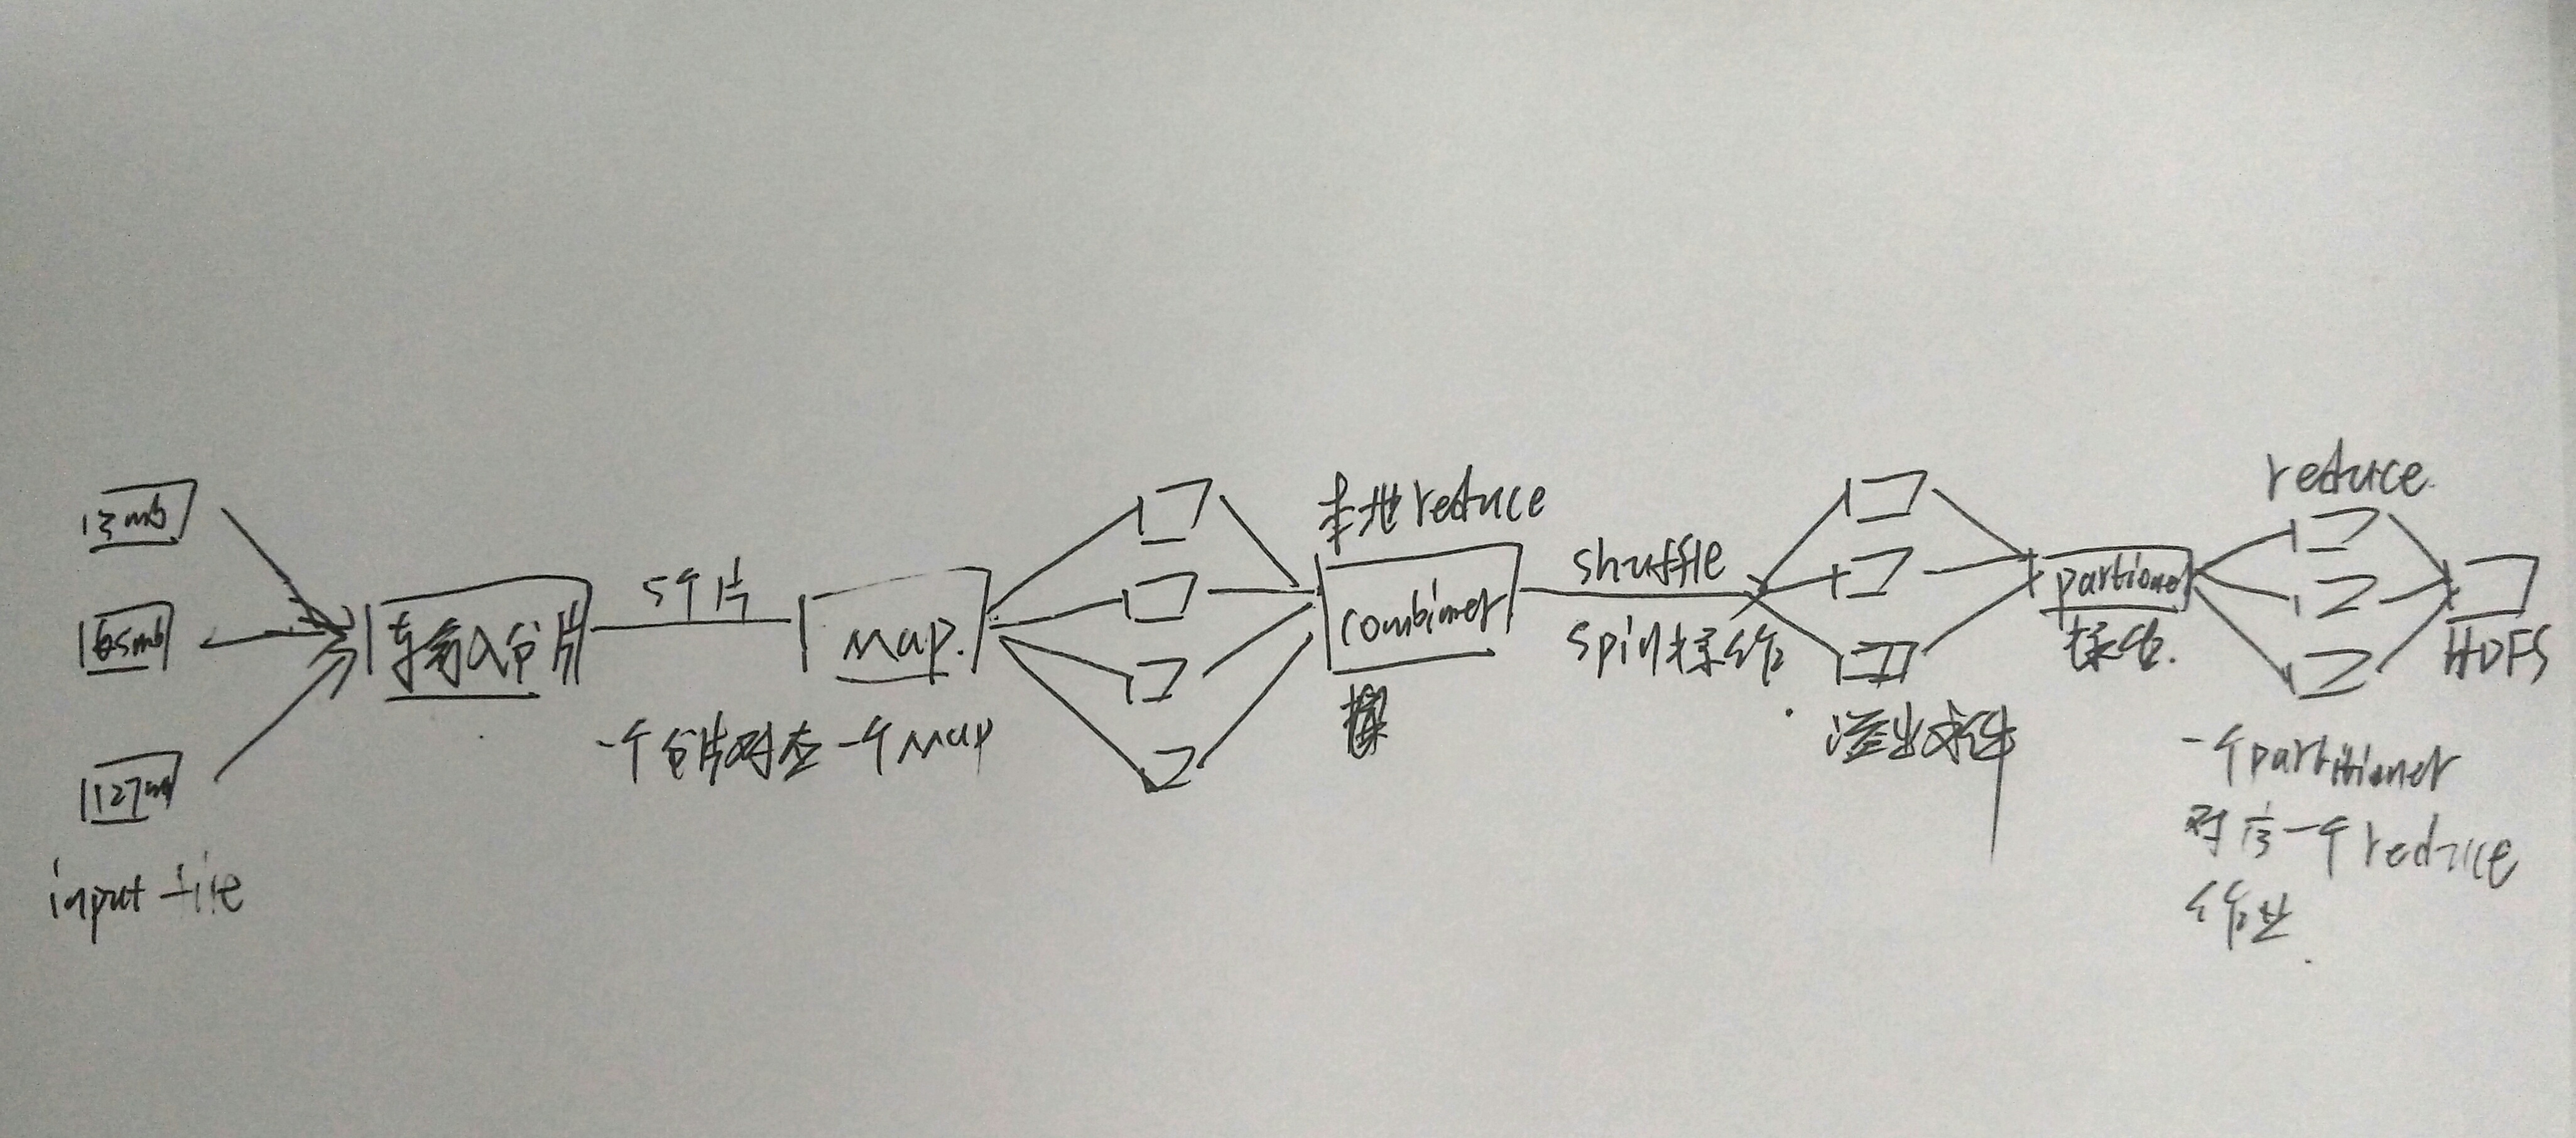 13mb
65mb
127m
input file
输入分片
5个片
一个分片对应一个map
map.
本地reduce
combiner
shuffle
spill操作
溢出文件
partioner
操作.
reduce
HDFS
一个partitioner
对应一个reduce
作业.